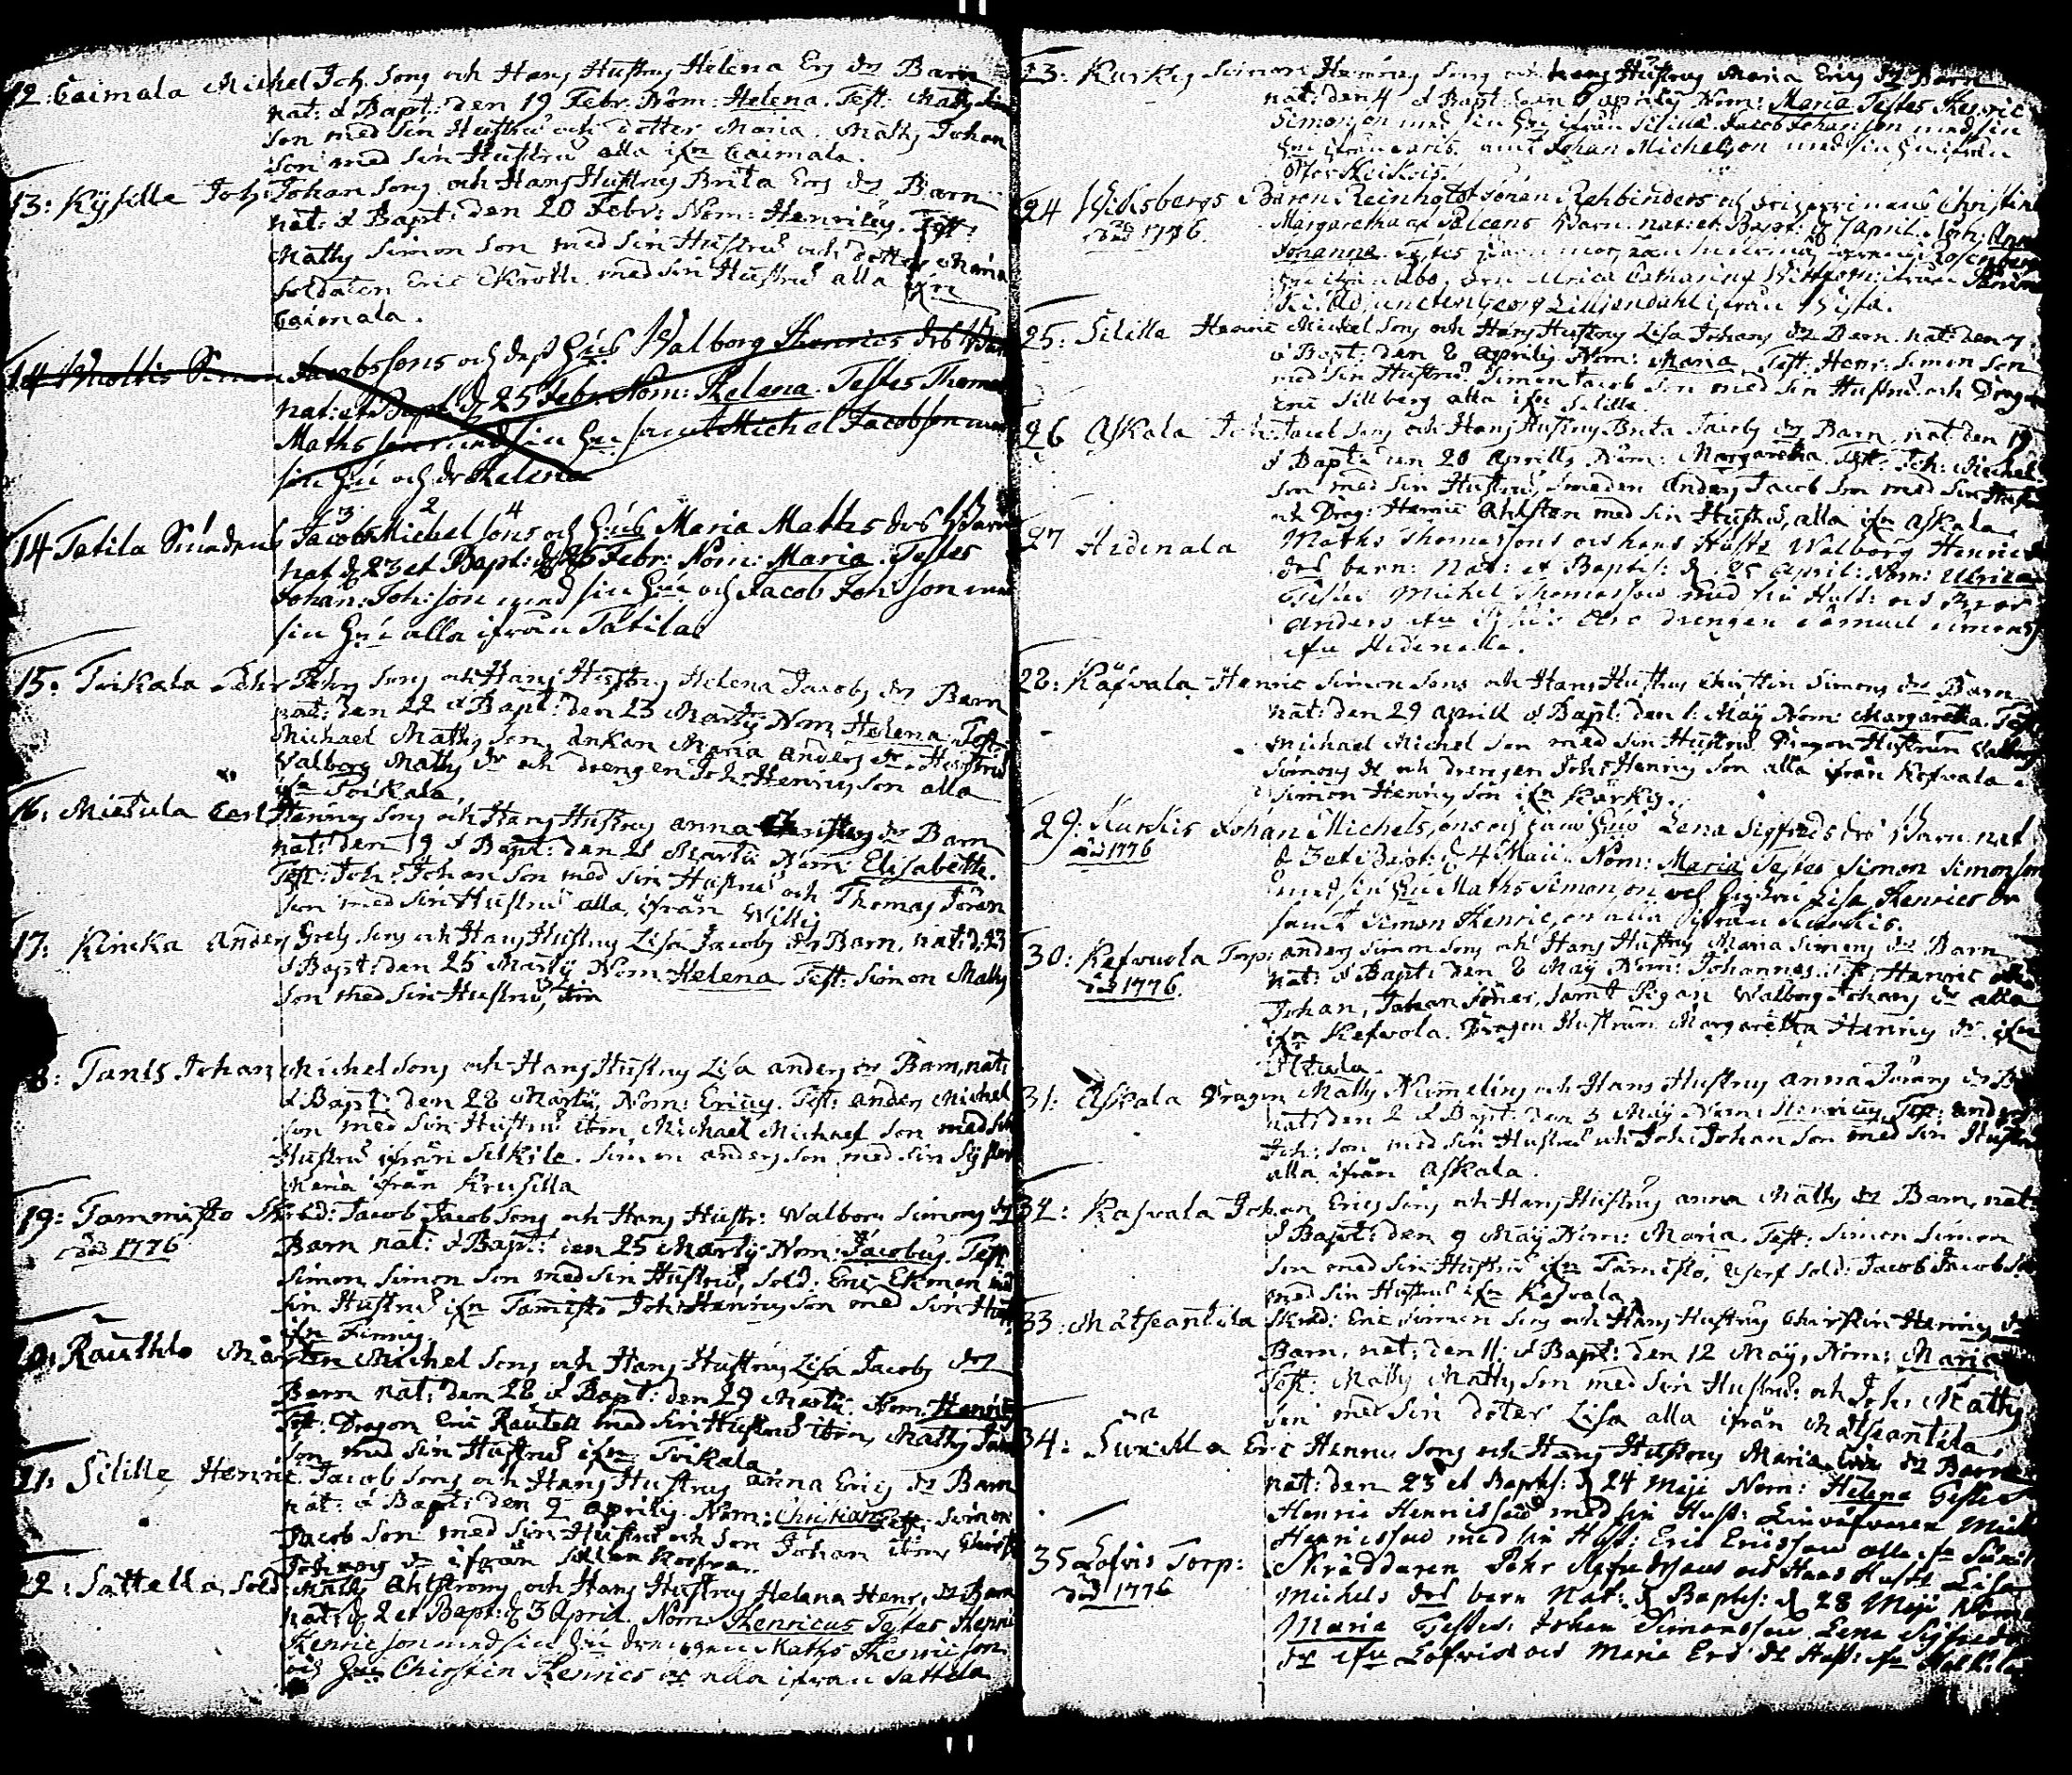 12: Caimala Michel Joh. Sons och Hans Hustrus Helena Ers dr Barn
nat: & Bapt: den 19 Febr. Nom: Helena. Test: Maths
Son med Sin Hustru och dotter Maria. Maths Johan
Son med Sin Hustru alla ifrn Caimala.
13: Kyssille Joh: Johan Sons och Hans Hustrus Brita Ers dr Barn
nat: & Bapt: den 20 Febr: Nom: Henricus. Test:
Maths Simon Son med Sin Hustru och dotter Maria
Soldaten Eric Ekroth med Sin Hustru alla ifrn
Caimala.
14 Simon Jacobssons och dess Hus Walborg Henrics drs
nat: et Bapt d 25 Febr. Nom: Helena. Testes Thomas
Maths son med sin Hu samt Michel Jacobsson med
sin Hu och dr Helena
3 2 4
14 Tatila Smedens Jacobs Michel sons och Hus Maria Matts drs Barn
nat d 23 et Bapt: d 25 Febr: Nom: Maria. Testes
Johan: Joh: son med sin Hu och Jacob Joh son med
sin Hu alla ifrån Tatila
15: Toikala Pehr Pehrs Sons och Hans Hustrus Helena Jacobs dr Barn
nat: den 22 & Bapt: den 23 Martij Nom: Helena. Test:
Michael Maths Son, Enkan Maria Anders dr. Hustru
Walborg Maths dr och drengen Joh: Henrics Son alla
ifrn Toikala
16: Mietula Carl Henrics Sons och Hans Hustrus Anna Christers dr Barn
nat: den 19 & Bapt: den 21 Martii Nom: Elisabetha.
Test: Joh: Johan Son med Sin Hustru och Thomas Jöran
Son med Sin Hustru alla ifrån Willis
17: Kincka Anders Grels Sons och Hans Hustrus Lisa Jacobs dr Barn, nat: d. 23
& Bapt: den 25 Martij Nom: Helena. Test: Simon Maths
Son med Sin Hustru,
8: Tants Johan Michel Sons och Hans Hustrus Lisa Anders dr Barn, nat:
& Bapt: den 28 Martij, Nom: Ericus. Test: Anders Michel
Son med Sin Hustru item Michael Michael Son med Sin
Hustru ifrån Silkile. Simon Anders Son med Sin Syster
Maria ifrån Krusilla
19: Tammisto Skräd: Jacob Jacob Sons och Hans Hustr: Walbor Simons dr
död 1776 Barn nat: & Bapt: den 25 Martij Nom: Jacobus. Test:
Simon Simon Son med Sin Hustru, Sold: Eric Ekman med
Sin Hustru ifrn Tamisto Joh: Henrics Son med Sin Hust:
ifrn Finnis.
Rauthlo Mårten Michel Sons och Hans Hustrus Lisa Jacobs dr
Barn nat: den 28 & Bapt: den 29 Martii. Nom: Henric
Test: Dragon Eric Rautell med Sin Hustru item, Maths
Son med Sin Hustru ifrn Toikala
21: Silille Henric Jacob Sons och Hans Hustrus Anna Erics dr Barn
nat: & Bapt: den 2 Aprilis. Nom: Christian. Test: Simon
Jacob Son med Sin Hustru och Son Johan item
Johans dr ifrån
22: Sattella, Sold: Maths Ahlströms och Hans Hustrus Helena Henr: dr Barn
nat: d 2 et Bapt: d 3 April. Nom: Henricus Testes Henric
Henricson med sin Hu drengen Maths Henricson
och Hu Chirstin Henrics dr alla ifrån Sattela
23: Kurkis Simon Henrics Sons och hans Hustrus Maria Erics dr Barn
nat: den 4 & Bapt: den 6 Aprilis Nom: Maria Testes Henric
Simonson med sin Hu ifrån Silille. Jacob Johanson med sin
Hu ifrån samt Johan Michelson med sin Hu ifrån
24 Wiksbergs Baron Reinhold Johan Rehbinders och Fri Christina
död 1776. Margaretha af Paléens Barn. nat: et Bapt: d 7 April. Nom: Anna
Johanna. Testes
Hu ifrån Åbo, Ulrica Catharina
Adjuncten Georg Lilljendahl ifrån
25: Silille Henric Michel Sons och Hans Hustrus Lisa Johans dr Barn. nat: den 7
& Bapt: den 8 Aprilis Nom: Maria. Test: Henr: Simon Son
med Sin Hustru. Simon Jacob Son med Sin Hustru och Dragon
Eric Sillberg alla ifrn Silille.
26 Askala Joh: Jacob Sons och Hans Hustrus Brita Jacobs dr Barn. nat: den 19
& Bapt: den 20 Aprilis Nom: Margaretha. Test: Joh: Michel
Son med Sin Hustru, Smeden Anders Jacob Son med Sin Hustru
och Drag: Henric Ahlsten med Sin Hustru, alla ifrn Askala.
27 Hidenala Maths Thomassons och hans Hust: Walborg Henrics
dr barn: Nat: et Baptis: d. 25 April: Nom: Ulrica
Testes Michel Thomasson med sin Hust: och Bror
Anders ifrn drengen Samuel Simons
ifrn Hidenala.
28: Käfvala Henric Simon Sons och Hans Hustrus Chirstin Simons dr Barn
nat: den 29 Aprill & Bapt: den 1. Maij Nom: Margaretha. Test:
Michael Michel Son med Sin Hustru Dragon Hustrun Walborg
Simons dr och drengen Joh: Henrics Son alla ifrån Kefvala.
Simon Henrics Son ifrn Kurkis.
29: Kurkis Johan Michelssons och hans Hus Lena Sigfreds drs Barn nat
död 1776 d 3 et Bapt: d 4 Maii. Nom: Maria Testes Simon Simonson
med sin Hu Maths Simonson och Hustru Lisa Henrics dr
samt Simon Henricson alla ifrån Kurkis.
30: Kefwola Torp: Anders Simon Sons och Hans Hustrus Maria Simons dr Barn
död 1776. nat: & Bapt: den 8 Maij Nom: Johannes. Test: Henric och
Johan, Johan Söner, samt Pigan Walborg Johans dr alla
ifrn Kefwola. Dragon Hustrun Margaretha Henrics dr ifrn
31: Askala Dragon Maths Numelins och Hans Hustrus Anna Jörans dr B
nat: den 2 & Bapt: den 3 Maij Nom: Henricus. Test: Anders
Joh: Son med Sin Hustru och Joh: Johan Son med Sin Hustru
alla ifrån Askala.
32: Kafvala Johan Erics Sons och Hans Hustrus Anna Maths dr Barn, nat:
& Bapt: den 9 Maij Nom: Maria. Test: Simon Simon
Son med Sin Hustru ifrn Tamisto, Sold: Jacob Jacob Son
med Sin Hustru ifrn Kefvala.
33: Mätseäntila Skräd: Eric Simon Sons och Hans Hustrus Chirstin Henrics dr
Barn, nat: den 11: & Bapt: den 12 Maij, Nom: Maria
Test: Maths Maths Son med Sin Hustru: och Joh: Maths
Son med Sin doter Lisa alla ifrån Mätseäntila,
34: Eric Henrics Sons och Hans Hustrus Maria Erix dr Barn
nat: den 23 et Baptis: d 24 Maji Nom: Helena Testes
Henric Henricsson med sin Hust: Linväfvaren Mich
Henricsson med sin Hust: Eric Ericsson alla ifrn
35 Lofvis Torp: Skräddaren Pehr Sigfredssons och Hans Hust: Lisa
död 1776 Michels dr barn Nat: & Baptis: d 28 Maji Nom:
Maria Testes: Johan Simonsson Lena Sigfreds
dr ifrn Lofvis och Maria Ers dr Hust: ifrn